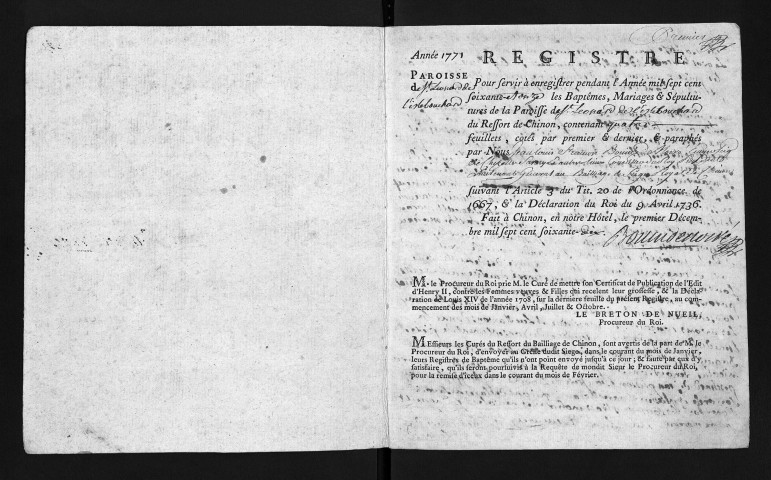 Premier
Année 1771 REGISTRE
PAROISSE
de St Leonard de
l'islebouchard
Pour servir à enregistrer pendant l'Année mil sept cent
soixante et onze les Baptêmes, Mariages & Sépultures
de la Paroisse de St Leonard de l'islebouchard
du Ressort de Chinon, contenant quatre
feuillets, cotés par premier & dernier, & paraphés
par Nous
Lieutenant General au Bailliage de Siege Royal de
suivant l'Article 3 du Tit. 20 de l'Ordonnance de
1667, & la Déclaration du Roi du 9 Avril 1736.
Fait à Chinon, en notre Hôtel, le premier Décem-
bre mil sept cent soixante dix
M. le Procureur du Roi prie M. le Curé de mettre son Certificat de Publication de l'Edit
d'Henry II, contre les Femmes veuves & Filles qui recelent leur grossesse, & la Décla-
ration de Louis XIV de l'année 1708, sur la derniere feuille du présent Registre, au com-
mencement des mois de Janvier, Avril, Juillet & Octobre.
LE BRETON DE NUEIL,
Procureur du Roi.
MEssieurs les Curés du Ressort du Bailliage de Chinon, sont avertis de la part de M. le
Procureur du Roi, d'envoyer au Greffe dudit Siege, dans le courant du mois de Janvier,
leurs Registres de Baptême qu'ils n'ont point envoyé jusqu'à ce jour; & faute par eux d'y
satisfaire, qu'ils seront poursuivis à la Requête de mondit Sieur le Procureur du Roi,
pour la remise d'iceux dans le courant du mois de Février.